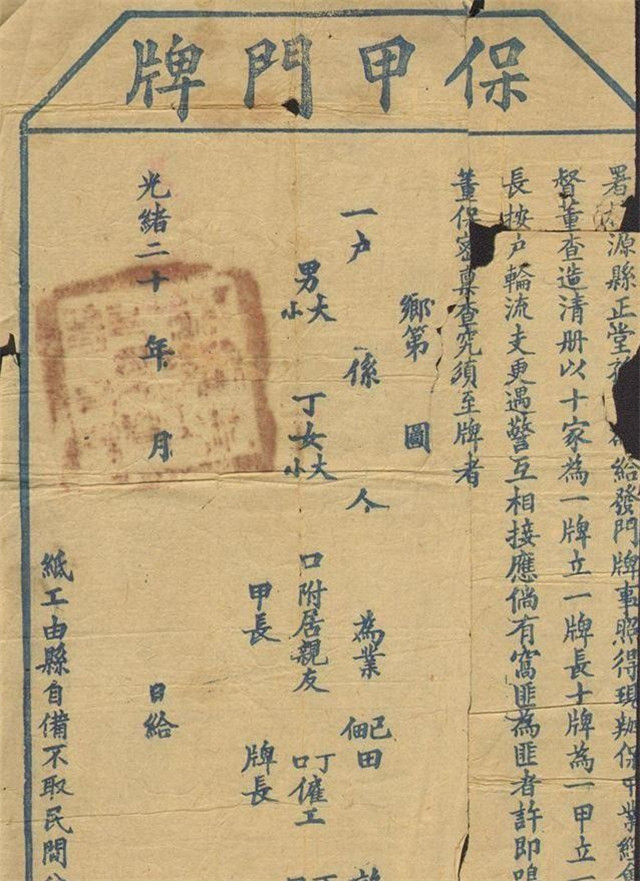 保甲門牌
署 源縣正堂 給發門牌事照得現辦保甲業經
督董查造清册以十家為一牌立一牌長十牌為一甲立一
長按戶輪流支更遇警互相接應倘有窩匪為匪者許即鳴
董保密稟查究須至牌者
鄉第 圖
一户 係 人 為業 己田 佃
男大小 丁女大小 口附居親友 丁口 僱工 丁
甲長 牌長
光緒二十 年 月 日給
紙工由縣自備不取民間分